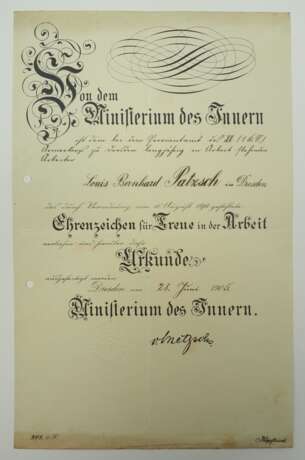 Von dem
Ministerium des Innern
ist dem bei dem Proviantamt des XII. (1. K. S.)
Armeekorps zu Dresden langjährig in Arbeit stehenden
Arbeiter
Louis Bernhard Patzsch in Dresden
das durch Verordnung vom
Ehrenzeichen für Treue in der Arbeit
verliehen und hierüber diese
Urkunde
ausgefertigt worden.
Dresden, am 21. Juni 1905.
Ministerium des Innern.